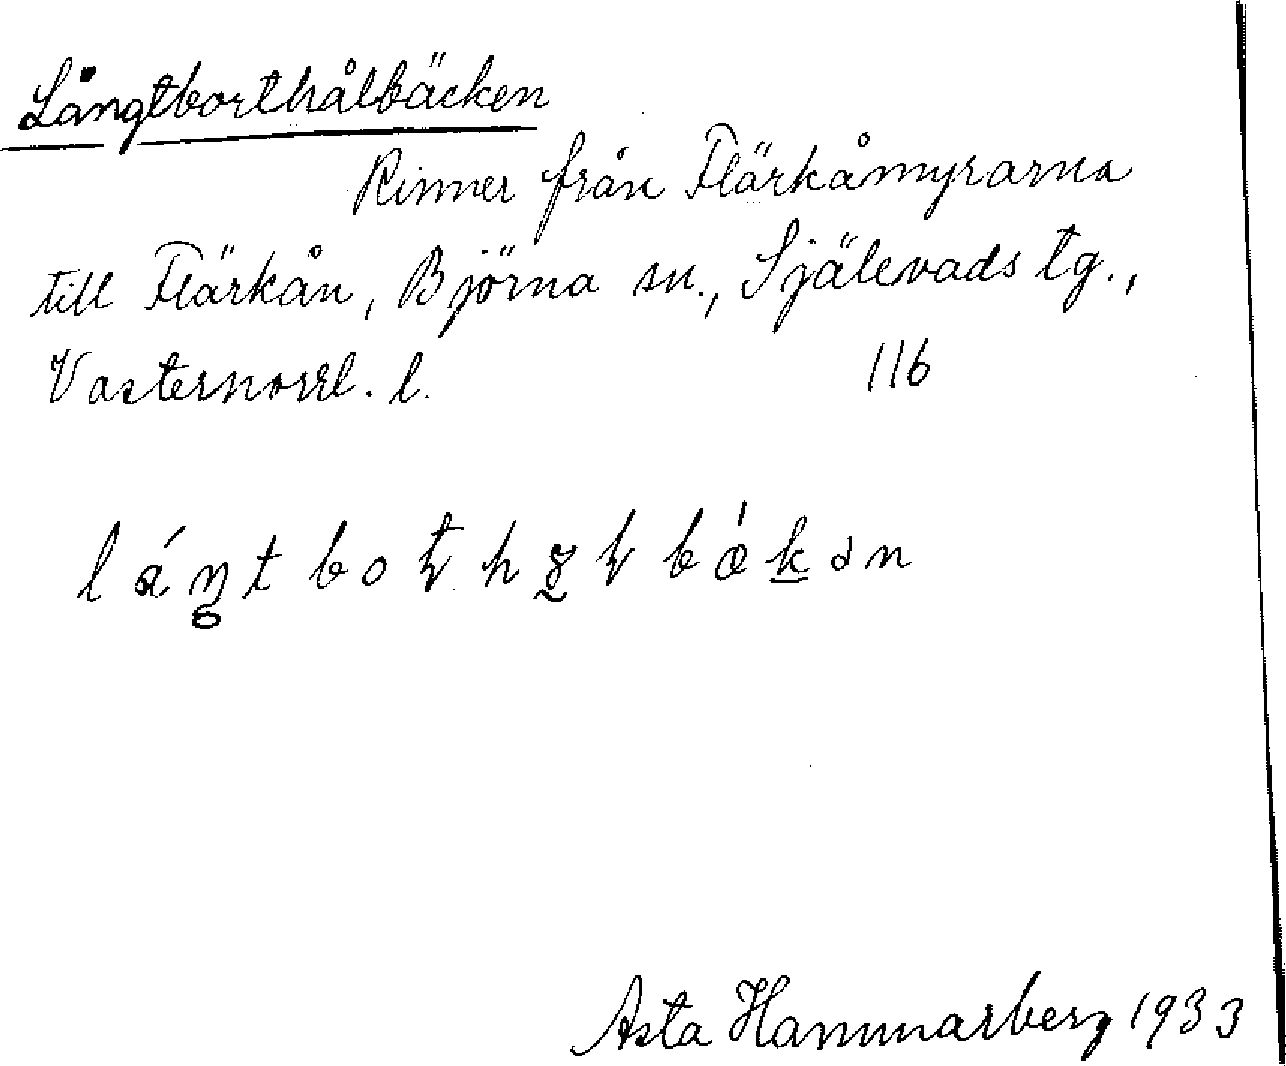 Långtborthålbäcken
Rinner från Flärkåmyrarna
till Flärkån, Björna sn., Själevads tg.,
Vasternorrl. l. 116
Asta Hammarberg 1933